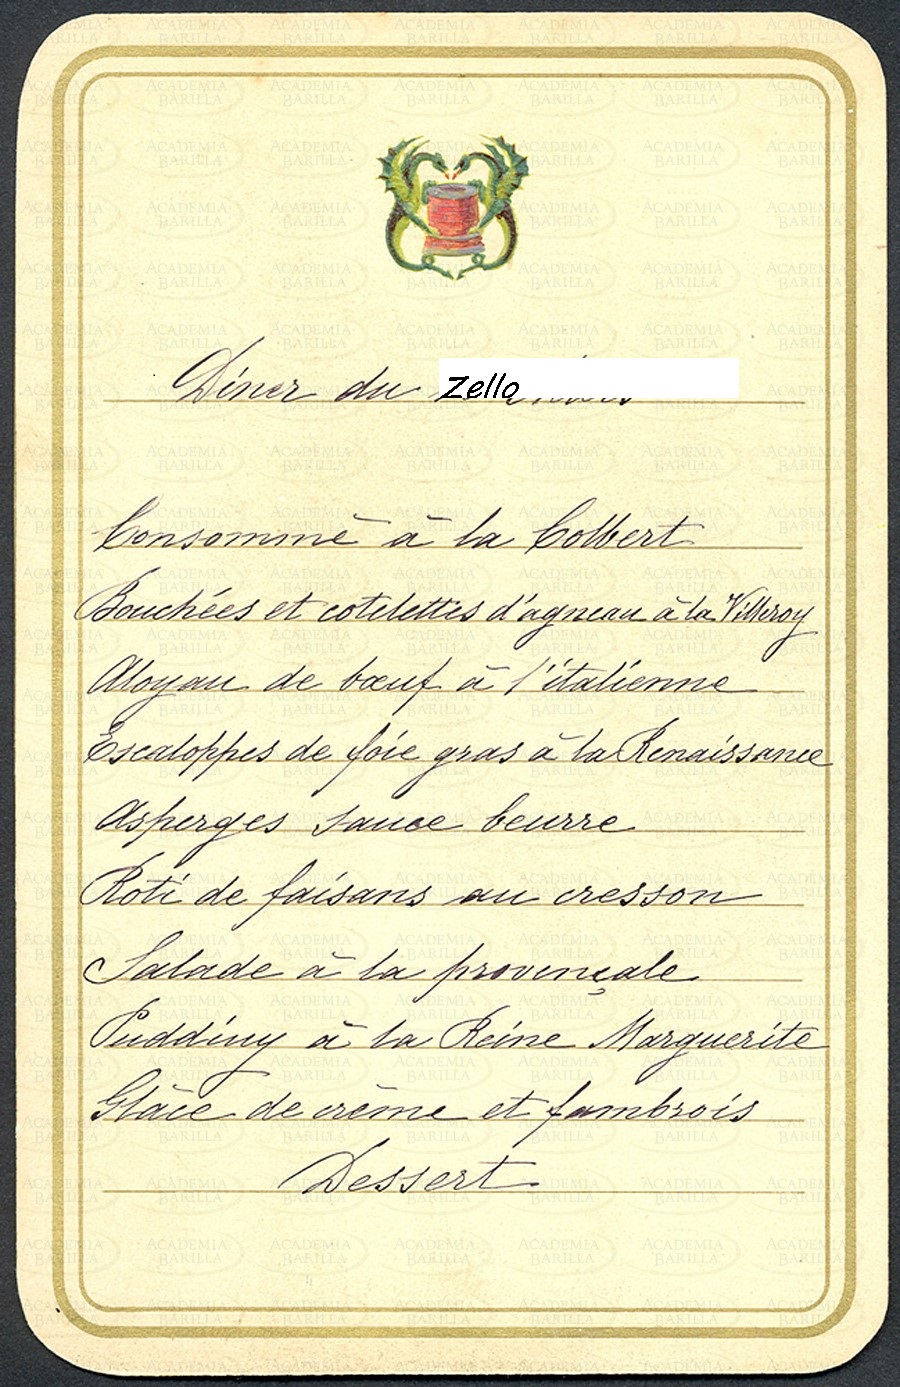 Dîner du Zello
Consommé à la Colbert
Bouchées et cotelettes d'agneau à la Villeroy
Aloyau de bœuf à l'italienne
Escaloppes de foie gras à la Renaissance
Asperges sauce beurre
Roti de faisans au cresson
Salade à la provençale
Pudding à la Reine Marguerite
Glâce de crême et fambrois
Dessert
ACADEMIA BARILLA